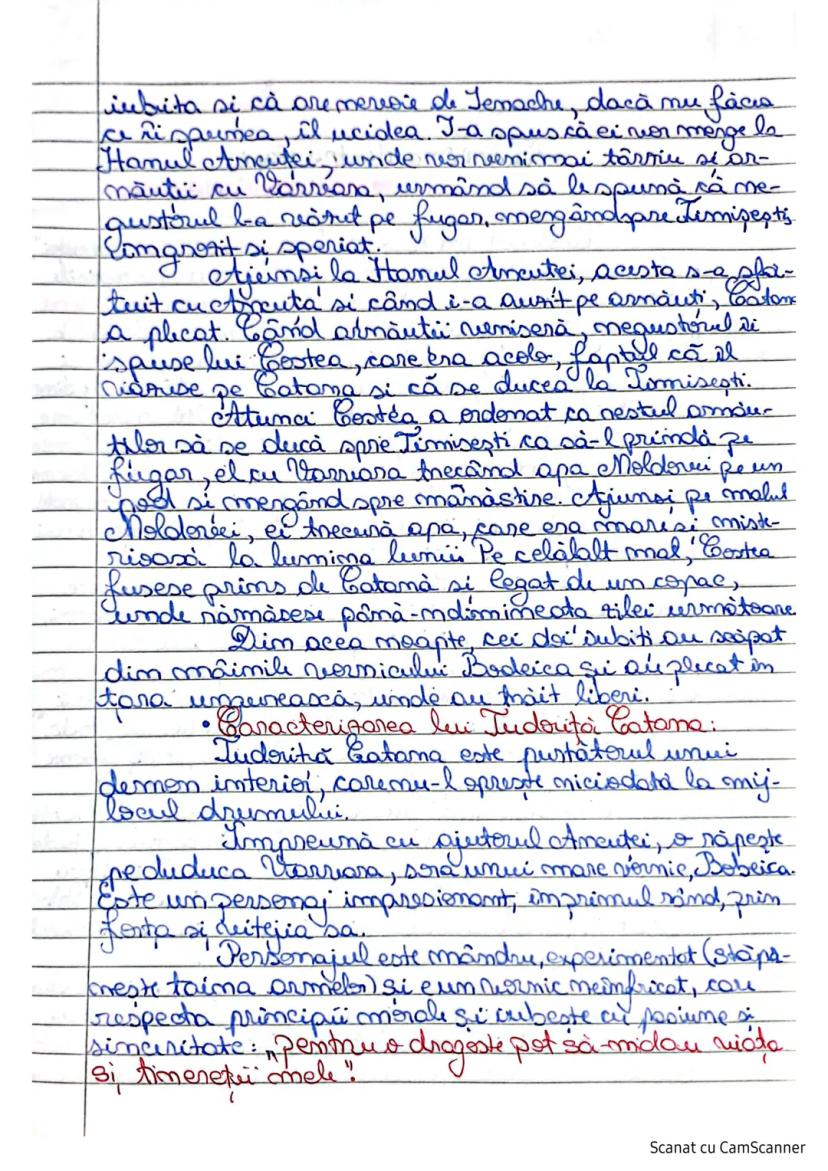 iubita si că are nevoie de Ienache, dacă nu făcea
ce îi spunea, îl ucidea. I-a spus că ei vor merge la
Hanul Ancuței, unde vor veni mai târziu si ar-
năuții cu Varvara, urmând să le spună că ne-
gustorul l-a văzut pe fugar, mergând spre Timișești,
îngrozit si speriat.
Ajunsi la Hanul Ancutei, acesta s-a sfă-
tuit cu Ancuta si când i-a auzit pe arnăuti, Catana
a plecat. Când arnăutii veniseră, negustorul îi
spuse lui Costea, care era acolo, faptul că îl
văzuse pe Catana si că se ducea la Timisesti.
Atunci Costea a ordonat ca restul arnău-
tilor să se ducă spre Timisesti ca să-l prindă pe
fugar, el cu Varvara trecând apa Moldovei pe un
pod si mergând spre mânăstire. Ajunsi pe malul
Moldovei, ei trecură apa, care era mare si miste-
rioasă la lumina lunii. Pe celălalt mal, Costea
fusese prins de Catană si legat de un copac,
unde rămăsese până-ndimineata zilei următoare.
Din acea noapte, cei doi iubiti au scăpat
din mâinile vornicului Bobeica și au plecat în
țara ungurească, unde au trăit liberi.
• Caracterizarea lui Tudoriță Catana:
Tudorită Catana este purtătorul unui
demon interior, care nu-l oprește niciodată la mij-
locul drumului.
Împreună cu ajutorul Ancutei, o răpește
pe duduca Varvara, sora unui mare vornic, Bobeica.
Este un personaj impresionant, în primul rând, prin
forța si vitejia sa.
Personajul este mândru, experimentat (stăpâ-
nește taina armelor) și e un vornic neînfricat, care
respectă principii morale și iubește cu pasiune si
sinceritate: „pentru o dragoste pot să-mi dau viața
si, tinereței mele”!
Scanat cu CamScanner